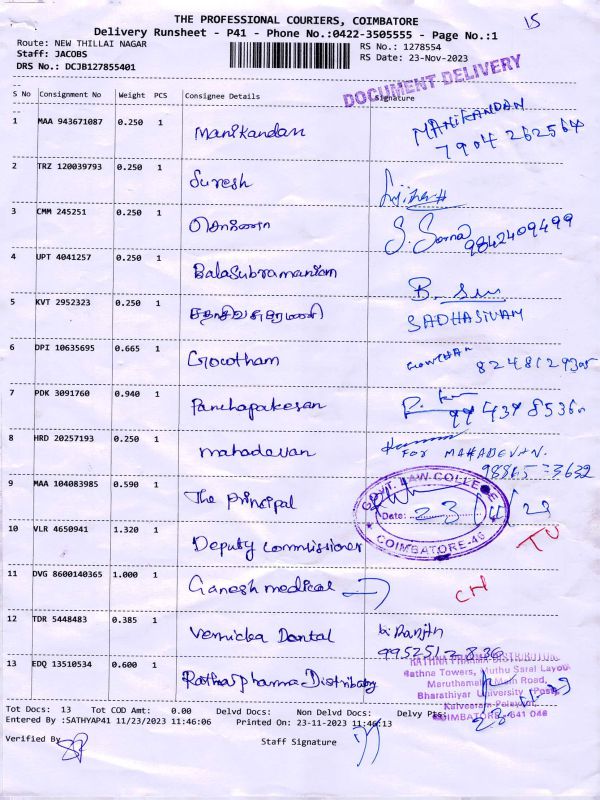 THE PROFESSIONAL COURIERS, COIMBATORE
15
Delivery Runsheet - P41 - Phone No.:0422-3505555 - Page No.:1
Route: NEW THILLAI NAGAR
RS No.: 1278554
Staff: JACOBS
RS Date: 23-Nov-2023
DRS No.: DCJB127855401
DOCUMENT DELIVERY
S No Consignment No Weight PCS Consignee Details Signature
1 MAA 943671087 0.250 1 Manikandan MANIKANDAN
7904262564
2 TRZ 120039793 0.250 1 Suresh
3 CMM 245251 0.250 1 S. Sorna
9842409499
4 UPT 4041257 0.250 1 Balasubramaniam B.
5 KVT 2952323 0.250 1 SADHASIVAM
6 DPI 10635695 0.665 1 Gowtham GOWTHAM
7 PDK 3091760 0.940 1 Panchapakesan
8 HRD 20257193 0.250 1 mahadevan FOR MAHADEVAN.
9 MAA 104083985 0.590 1 The Principal
GOVT. LAW COLLEGE
Date: 23/11/23
COIMBATORE-46
10 VLR 4650941 1.320 1 Deputy Commissioner TU
11 DVG 8600140365 1.000 1 Ganesh medical CH
12 TDR 5448483 0.385 1 Vernicka Dental
9952512836
13 EDQ 13510534 0.600 1 Rathna Pharma Distributors
RATHNA PHARMA DISTRIBUTORS
Rathna Towers, Muthu Saral Layout
Maruthamalai Main Road,
Bharathiyar University (Post)
COIMBATORE-641 046
Tot Docs: 13 Tot COD Amt: 0.00 Delvd Docs: Non Delvd Docs: Delvy Pts:
Entered By :SATHYAP41 11/23/2023 11:46:06 Printed On: 23-11-2023 11:46:13
Verified By
Staff Signature